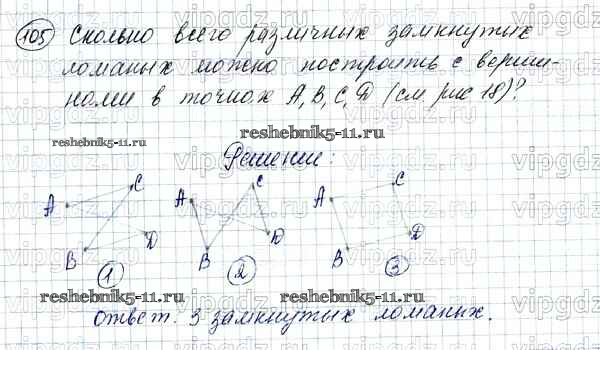 105 Сколько всего различных замкнутых
ломаных можно построить с верши-
нами в точках A, B, C, D (см рис 18)?
reshebnik5-11.ru
reshebnik5-11.ru
Решение:
A C B D
1
A C B D
2
A C B D
3
reshebnik5-11.ru
reshebnik5-11.ru
Ответ. 3 замкнутых ломаных.
vipgdz.ru